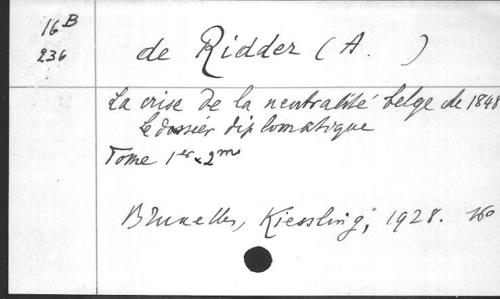 16 B
236
de Ridder (A. )
La crise de la neutralité belge de 1848
Le dossier diplomatique
Tome 1er & 2me
Bruxelles, Kiessling, 1928.